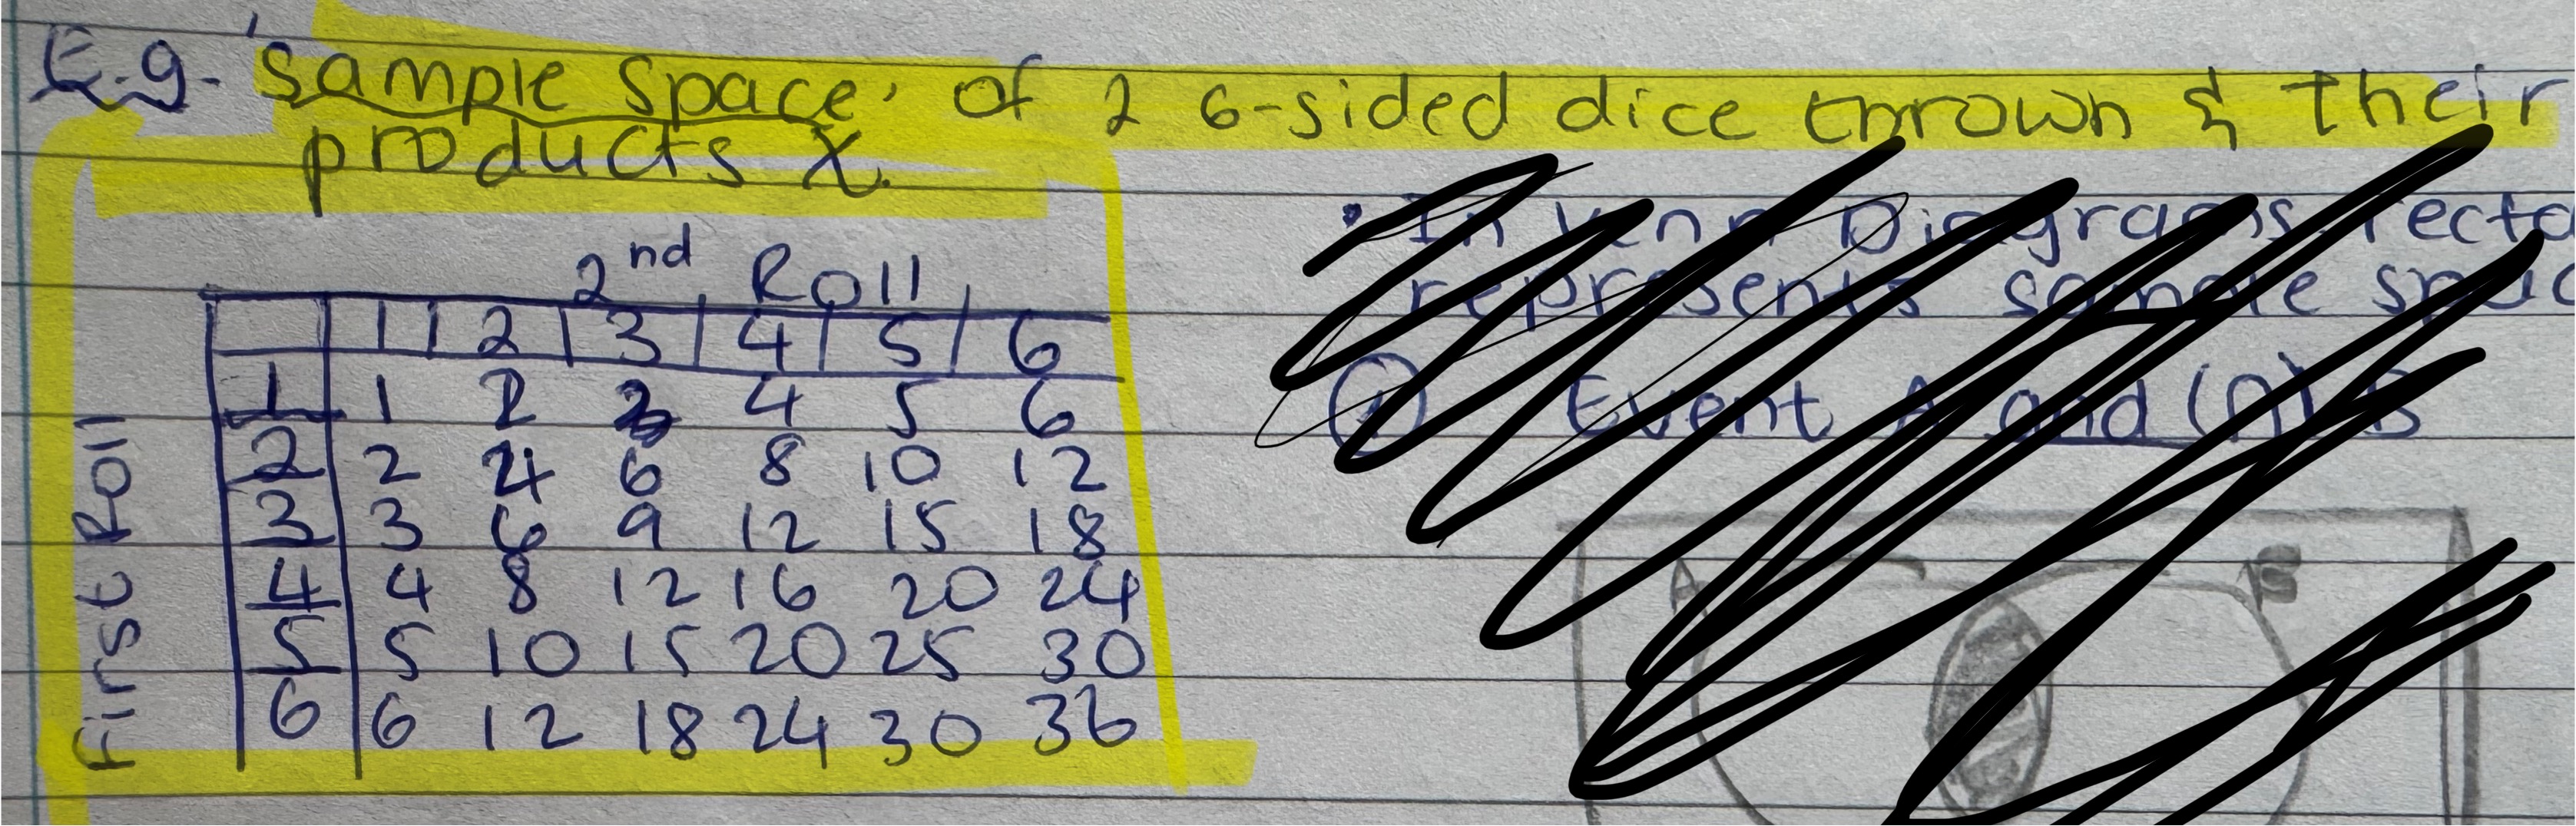 E.g. 'sample space' of 2 6-sided dice thrown & their
products X.
2nd Roll
1 2 3 4 5 6
First Roll
1 1 2 3 4 5 6
2 2 4 6 8 10 12
3 3 6 9 12 15 18
4 4 8 12 16 20 24
5 5 10 15 20 25 30
6 6 12 18 24 30 36
• In Venn Diagrams
represents sample
Event A and (∩) B